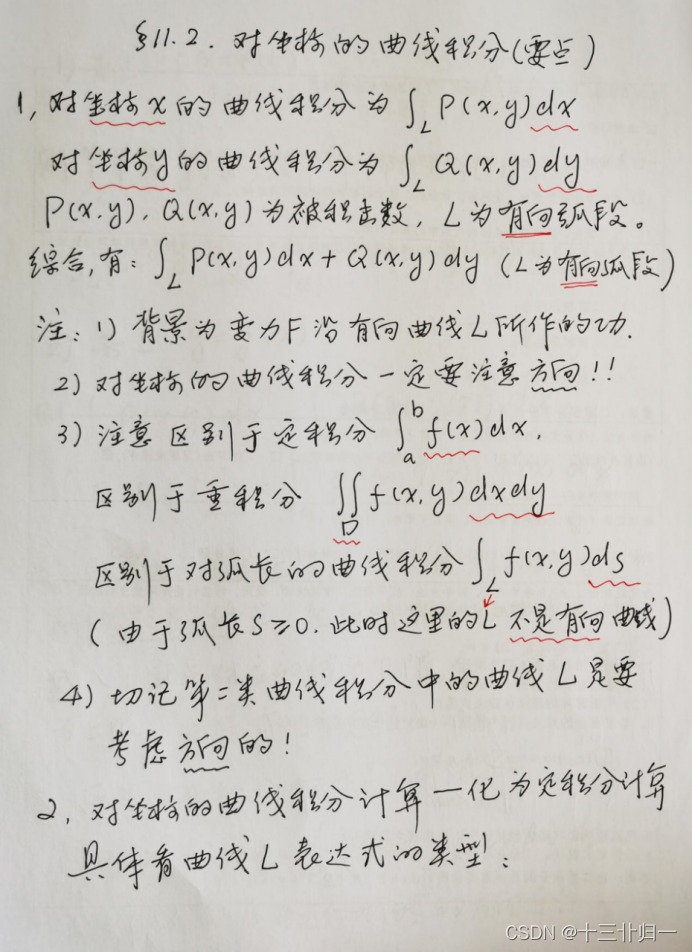 §11.2. 对坐标的曲线积分(要点)
1, 对坐标x的曲线积分为 ∫_L P(x,y)dx
对坐标y的曲线积分为 ∫_L Q(x,y)dy
P(x,y), Q(x,y)为被积函数, L为有向弧段。
综合,有: ∫_L P(x,y)dx + Q(x,y)dy (L为有向弧段)
注: 1) 背景为变力F沿有向曲线L所作的功.
2) 对坐标的曲线积分一定要注意方向!!
3) 注意区别于定积分 ∫_a^b f(x)dx,
区别于重积分 ∬_D f(x,y)dxdy
区别于对弧长的曲线积分 ∫_L f(x,y)ds
(由于弧长S≥0. 此时这里的L不是有向曲线)
4) 切记第二类曲线积分中的曲线L是要
考虑方向的!
2, 对坐标的曲线积分计算—化为定积分计算
具体看曲线L表达式的类型:
CSDN @十三卝归一